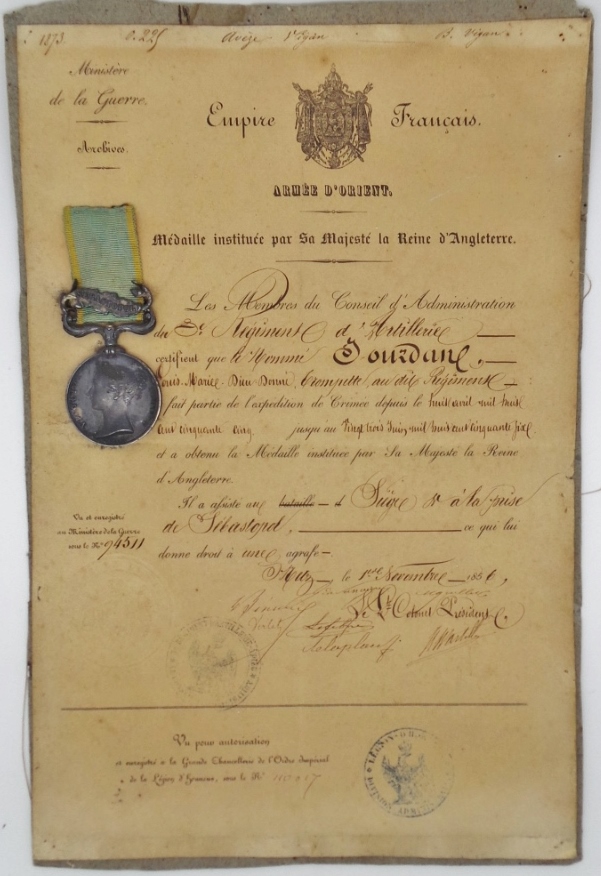 1873
Ministère
de la Guerre.
Archives.
Empire Français.
ARMÉE D'ORIENT.
Médaille instituée par Sa Majesté la Reine d'Angleterre.
Les Membres du Conseil d'Administration
du Régiment d'Artillerie
certifient que le Nommé Jourdan,
Louis-Marie-Dieu Donné, trompette au dit Régiment
fait partie de l'expédition de Crimée depuis le huit avril mil huit
cent cinquante cinq jusqu'au vingt trois Juin mil huit cent cinquante six
et a obtenu la Médaille instituée par Sa Majesté la Reine
d'Angleterre.
Il a assisté au bataille Siège & à la prise
de Sébastopol, ce qui lui
donne droit à une agrafe
Vu et enregistré
au Ministère de la Guerre
sous le N° 94511
le 1er Novembre 1856,
Le Lt Colonel Président,
Vu pour autorisation
et enregistré à la Grande Chancellerie de l'Ordre Impérial
de la Légion d'Honneur, sous le N°